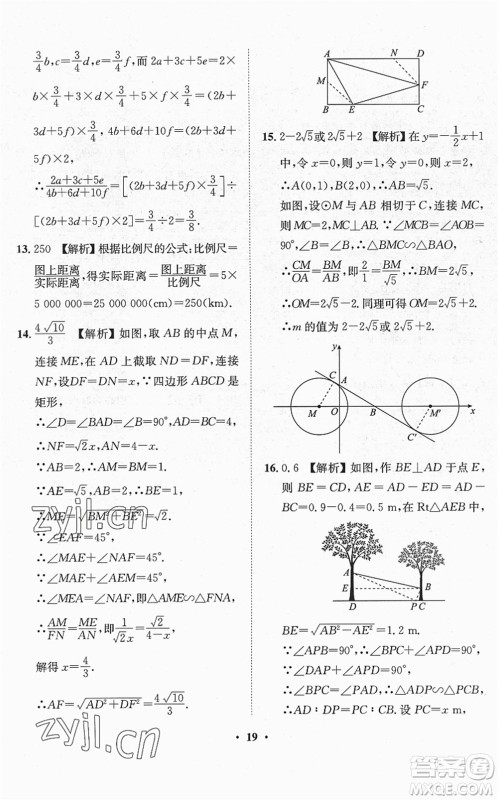 3/4 b, c=3/4 d, e=3/4 f, 而 2a+3c+5e=2×
b×3/4+3×d×3/4+5×f×3/4=(2b+
3d+5f)×3/4; 4b+6d+10f=2×(2b+
3d+5f), ∴(2a+3c+5e)÷(4b+6d+10f)
∴ (2a+3c+5e)/(4b+6d+10f)=[(2b+3d+5f)×3/4]÷
[(2b+3d+5f)×2]=3/8.
13. 250 【解析】根据比例尺的公式:比例尺=
图上距离/实际距离, 得实际距离=图上距离/比例尺=5×
5 000 000=25 000 000(cm)=250(km).
14. 4√10/3 【解析】如图,取 AB 的中点 M,
连接 ME,在 AD 上截取 ND=DF,连接
NF,设 DF=DN=x. ∵四边形 ABCD 是
矩形,
∴∠D=∠BAD=∠B=90°, AD=BC=4,
∴NF=√2x, AN=4-x.
∵AB=2, ∴AM=BM=1.
∵AE=√5, AB=2, ∴BE=1,
∴ME=√(BM²+BE²)=√2.
∵∠EAF=45°,
∴∠MAE+∠NAF=45°.
∵∠MAE+∠AEM=45°,
∴∠MEA=∠NAF, ∴△AME∽△FNA,
∴AM/FN=ME/AN, ∴1/(√2x)=√2/(4-x),
解得 x=4/3.
∴AF=√(AD²+DF²)=4√10/3.
A N D
M F
B E C
15. 2-2√5或2√5+2 【解析】在 y=-1/2x+1
中,令 x=0,则 y=1;令 y=0,则 x=2,
∴A(0,1),B(2,0),∴AB=√5.
如图,设⊙M 与 AB 相切于点 C,连接 MC,
则 MC=2, MC⊥AB. ∵∠MCB=∠AOB=
90°, ∠MBC=∠ABO, ∴△MBC∽△ABO,
∴CM/OA=BM/AB, 即2/1=BM/√5, ∴BM=2√5,
∴OM=2√5-2. 同理可得 OM'=2√5+2.
∴m 的值为 2-2√5或 2√5+2.
y
C A
M O B M' x
C'
16. 0.6 【解析】如图,作 BE⊥AD 于点 E,
则 BE=CD, AE=AD-ED=AD-
BC=0.9-0.4=0.5 m, 在 Rt△AEB 中,
A
E B
D P C
BE=√(AB²-AE²)=1.2 m.
∵∠APB=90°, ∴∠APD+∠BPC=90°.
∵∠BPC+∠PBC=90°,
∴∠APD=∠PBC, ∴△ADP∽△PCB,
∴AD:DP=PC:BC. ∵AD、DP、PC、
zyjl.cn
zyjl.cn
• 19 •
答案圈
MXQE.COM